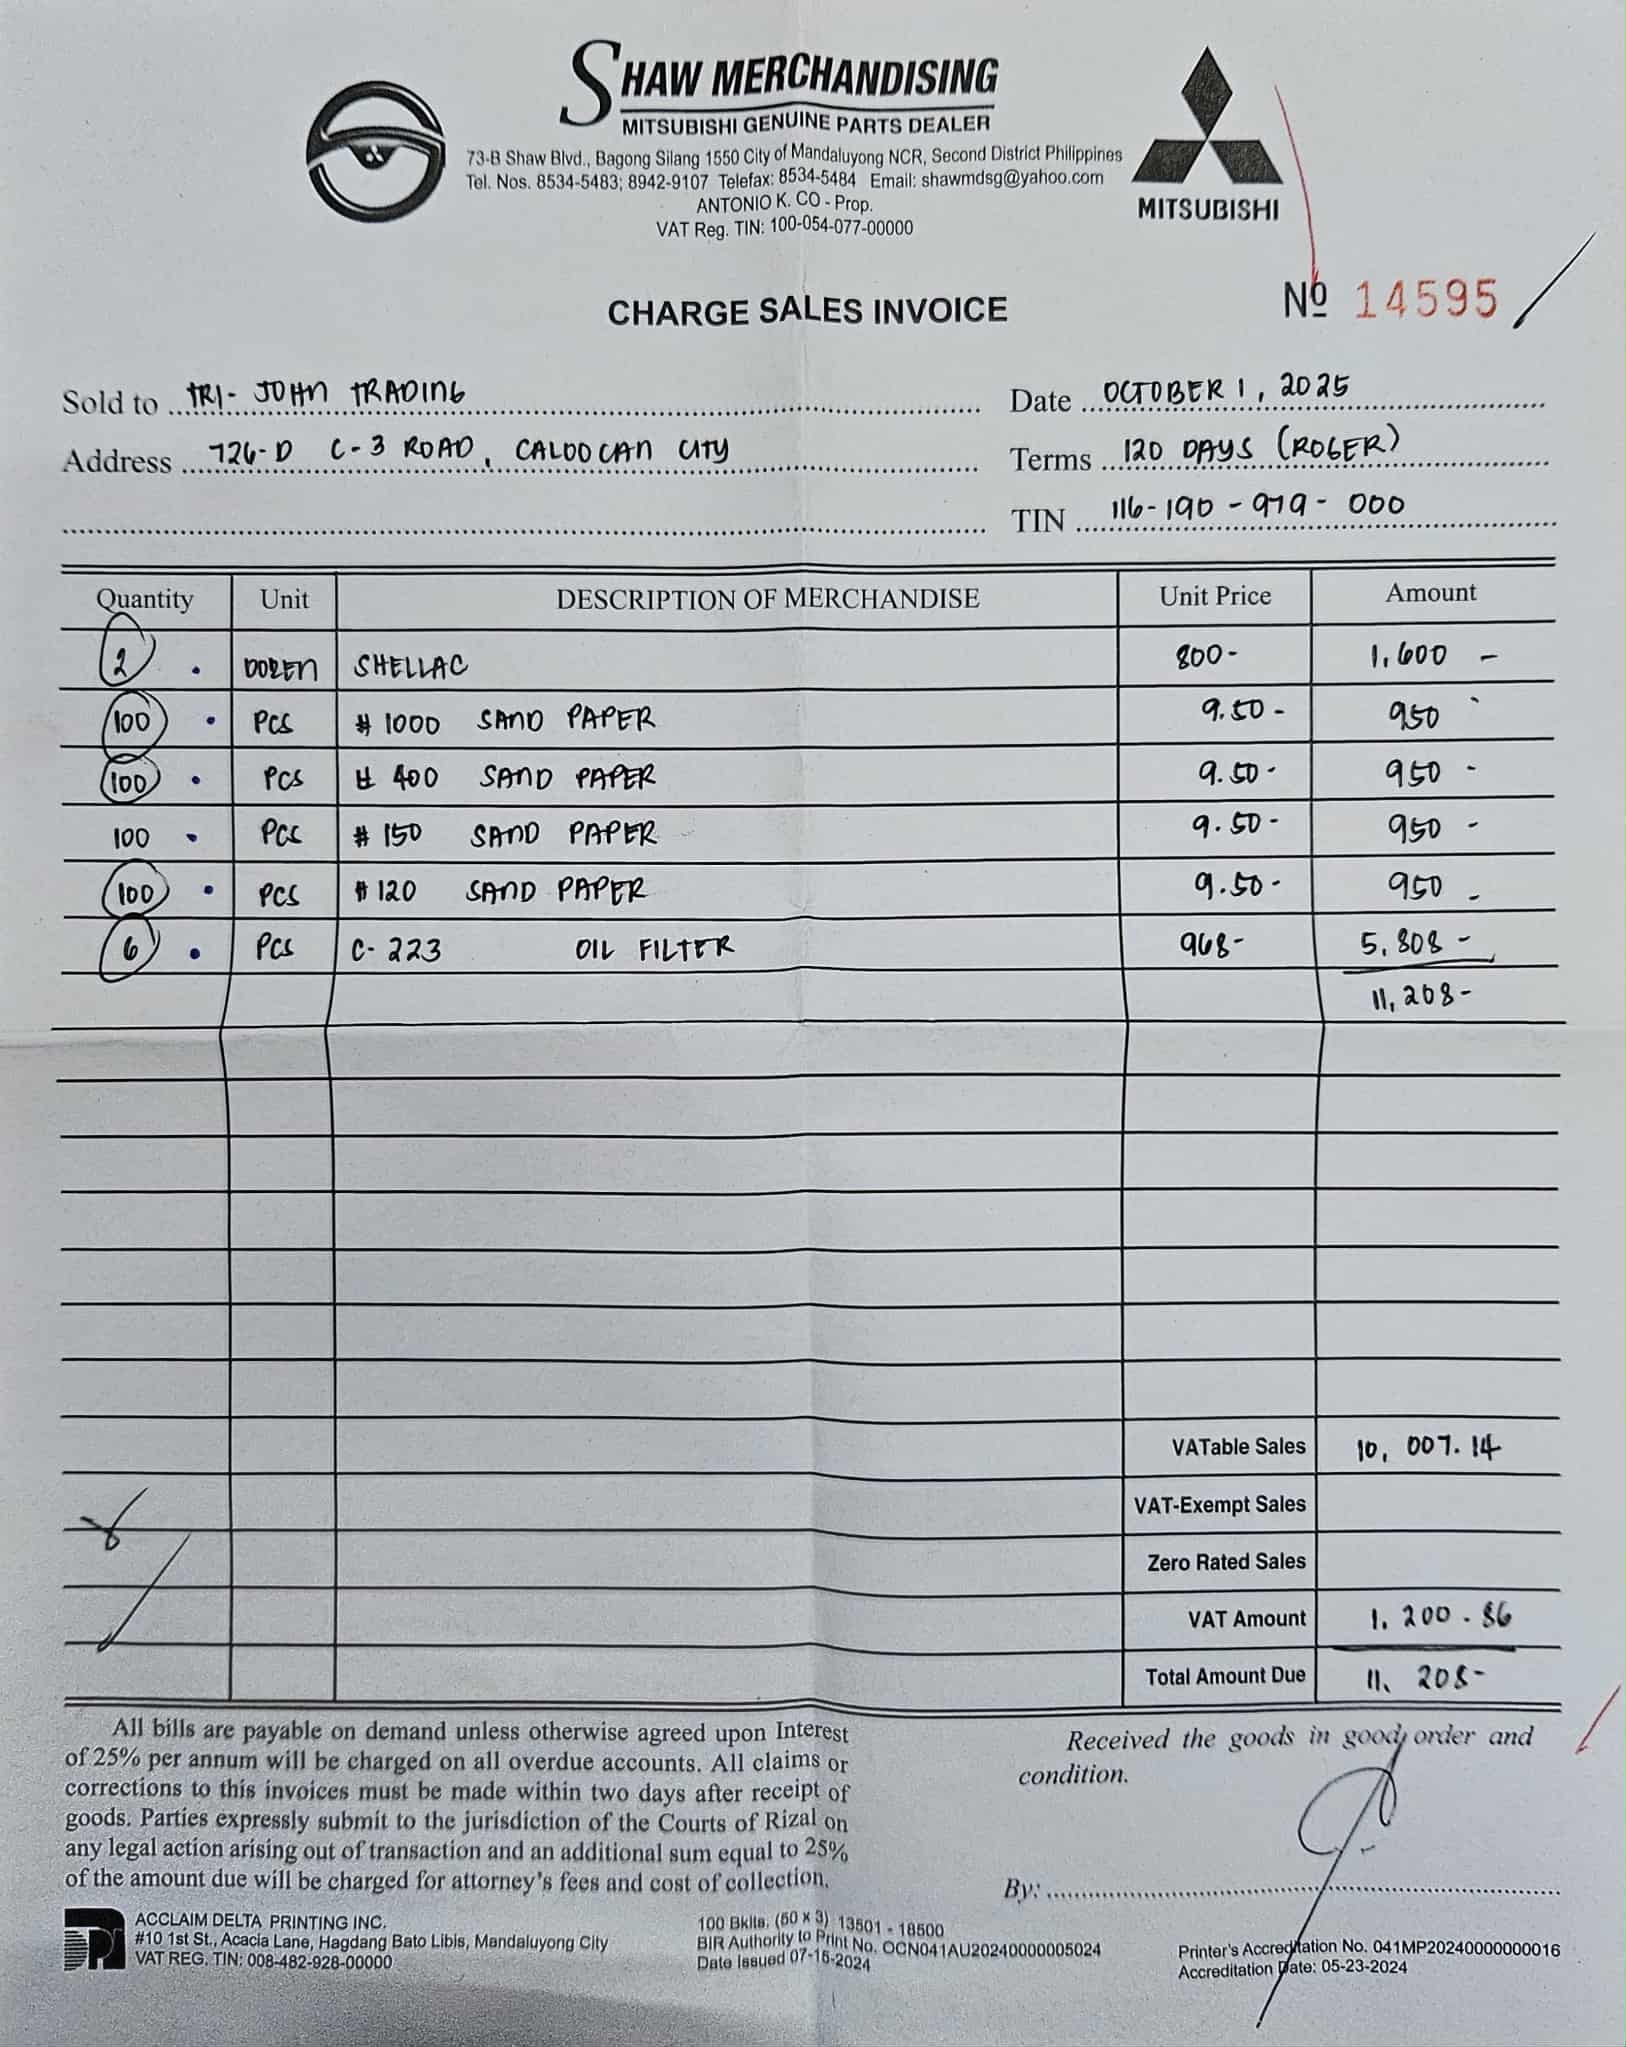 SHAW MERCHANDISING
MITSUBISHI GENUINE PARTS DEALER
73-B Shaw Blvd., Bagong Silang 1550 City of Mandaluyong NCR, Second District Philippines
Tel. Nos. 8534-5483; 8942-9107 Telefax: 8534-5484 Email: shawmdsg@yahoo.com
ANTONIO K. CO - Prop.
VAT Reg. TIN: 100-054-077-00000
MITSUBISHI
CHARGE SALES INVOICE
№ 14595
Sold to TRI-JOHN TRADING
Date OCTOBER 1, 2025
Address 726-D C-3 ROAD, CALOOCAN CITY
Terms 120 DAYS (ROGER)
TIN 116-190-979-000
Quantity Unit DESCRIPTION OF MERCHANDISE Unit Price Amount
2 DOZEN SHELLAC 800- 1,600 -
100 PCS #1000 SAND PAPER 9.50- 950 -
100 PCS # 400 SAND PAPER 9.50- 950 -
100 PCS # 150 SAND PAPER 9.50- 950 -
100 PCS # 120 SAND PAPER 9.50- 950 -
6 PCS C-223 OIL FILTER 968- 5,808 -
11,208-
VATable Sales 10,007.14
VAT-Exempt Sales
Zero Rated Sales
VAT Amount 1,200.86
Total Amount Due 11,208-
All bills are payable on demand unless otherwise agreed upon Interest
of 25% per annum will be charged on all overdue accounts. All claims or
corrections to this invoices must be made within two days after receipt of
goods. Parties expressly submit to the jurisdiction of the Courts of Rizal on
any legal action arising out of transaction and an additional sum equal to 25%
of the amount due will be charged for attorney's fees and cost of collection.
Received the goods in good order and
condition.
By:
ACCLAIM DELTA PRINTING INC.
#10 1st St., Acacia Lane, Hagdang Bato Libis, Mandaluyong City
VAT REG. TIN: 008-482-928-00000
100 Bklts. (50 x 3) 13501 - 18500
BIR Authority to Print No. OCN041AU20240000005024
Date Issued 07-15-2024
Printer's Accreditation No. 041MP20240000000016
Accreditation Date: 05-23-2024